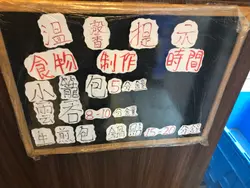 溫馨提示
食物 制作 時間
小籠包5分鐘
雲吞8-10分鐘
生煎包 鍋貼 15-20分鐘